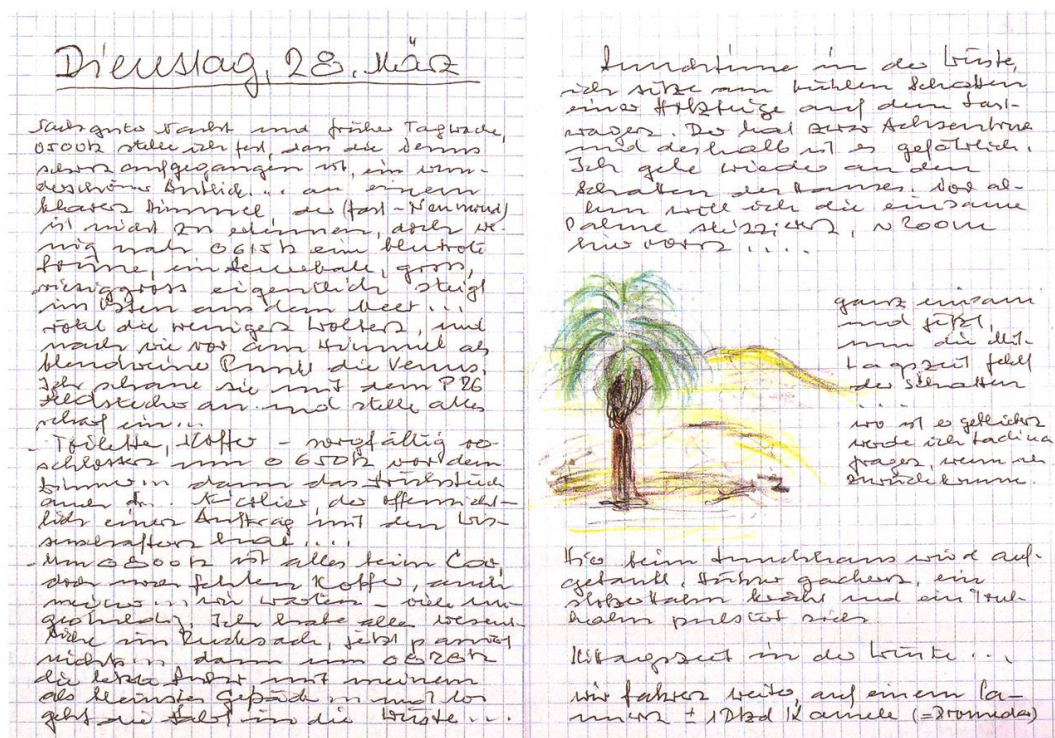 Dienstag, 28. März
gute Nacht und früher Tagwache,
0500h stelle ich fest, dass die Venus
schon aufgegangen ist, ein wun-
derschöner Anblick ... an einem
klaren Himmel, der (fast-Neumond)
ist nicht zu erkennen, doch we-
nig nach 0615h ein blutrote
Sonne, ein Feuerball, gross,
riesiggross eigentlich steigt
im Osten aus dem Meer ...
rötet die wenigen Wolken, und
nach wie vor am Himmel als
blendweisse Punkt die Venus.
Ich schaue sie mit dem
Feldstecher an und stelle alles
scharf ein ...
- Toilette, Koffer - sorgfältig
schlossen um 0650h vor dem
Zimmer ... dann das Frühstück
der offensicht-
lich einen Auftrag mit den Wis-
senschaftern hat ....
- Um 0800h ist alles beim Car,
doch fehlen Koffer, auch
meiner ... wir warten - viele un-
geduldig. Ich habe alles wesent-
liche im Rucksack, jetzt passiert
nichts ... dann um 0820h
die letzte mit meinem
als kleinstes Gepäck ... und los
geht die Fahrt in die Wüste ...
in der Wüste,
ich sitze am kühlen Schatten
einer auf dem Last-
wagen. Der hat zwar
und deshalb ist es gefährlich.
Ich gehe wieder an den
Schatten des Hauses. Vor al-
lem will ich die einsame
Palme skizzieren, ~ 200m
hier vorn ....
ganz einsam
und jetzt,
um die Mit-
tagszeit fehlt
der Schatten
wo ist er geblieben
werde ich
fragen, wenn ich
zurück komme.
Hier beim wird auf-
getankt, Hühner gackern, ein
stolzer Hahn kräht und ein Trut-
hahn plustert sich
Mittagszeit in der Wüste ...
wir fahren weiter, auf einem Ca-
mion ± 1 Dtzd Kamele (=Dromedar)